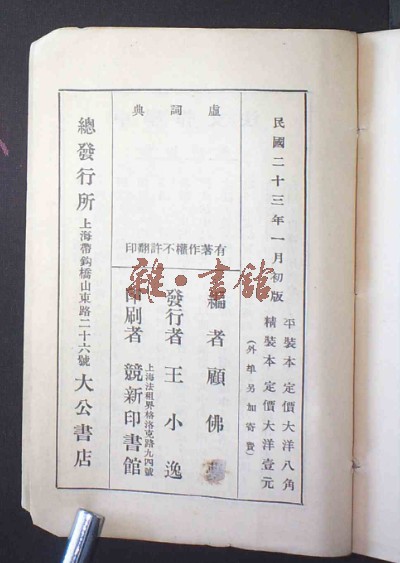 民國二十三年一月初版
平裝本 定價大洋八角
精裝本 定價大洋壹元
(外埠另加寄費)
虛詞典
有著作權不許翻印
編者 顧佛
發行者 王小逸
印刷者 競新印書館
上海法租界格洛克路九四號
總發行所 上海帶鈎橋山東路二十六號 大公書店
雅·書館